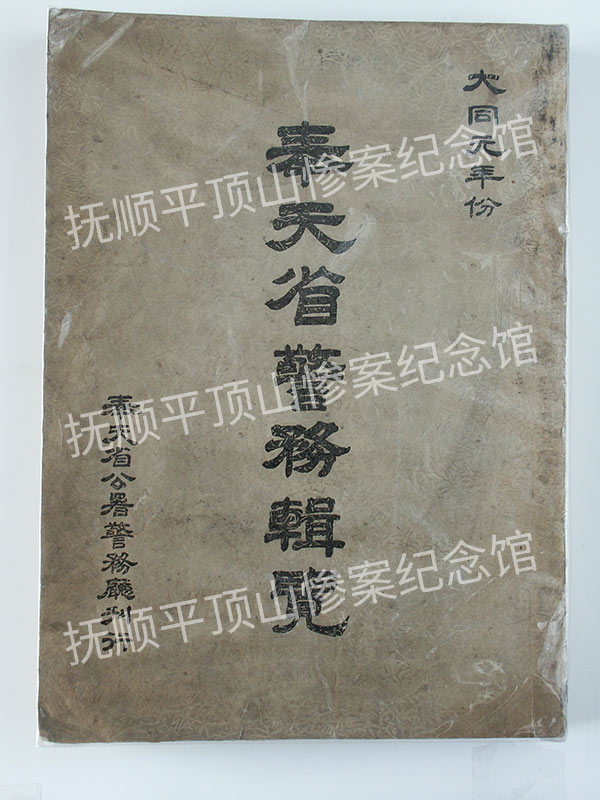 大同元年份
奉天省警務輯覽
奉天省公署警務廳刊行
抚顺平顶山惨案纪念馆
抚顺平顶山惨案纪念馆
抚顺平顶山惨案纪念馆